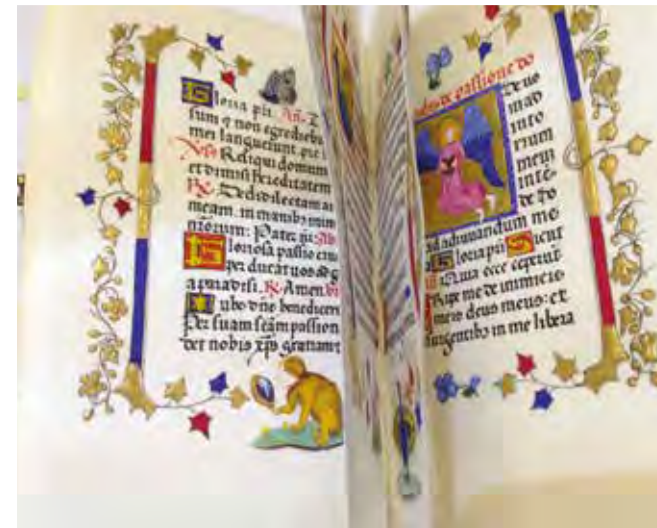 Gloria p̄ri. Añ. I
sum q̄ non egrediebar
mei languerunt. pre i
Reliqui domum
et dimisi hereditatem
Dedi dilectam ai
meam. in manib9 inim
Pater
loriosa passio
per ducat uos
R. Amen.
ube dñe benedicere
Per suam scām passion
det nobis xp̄s gratiam
de passione do
Deus
in ad
iuto
rium
meum
inte
de Do
ad adiuuandum me
Gloria Sicut
Quia ecce ceperūt
Eripe me de inimicis
meis deus meus: et
insurgentib9 in me libera